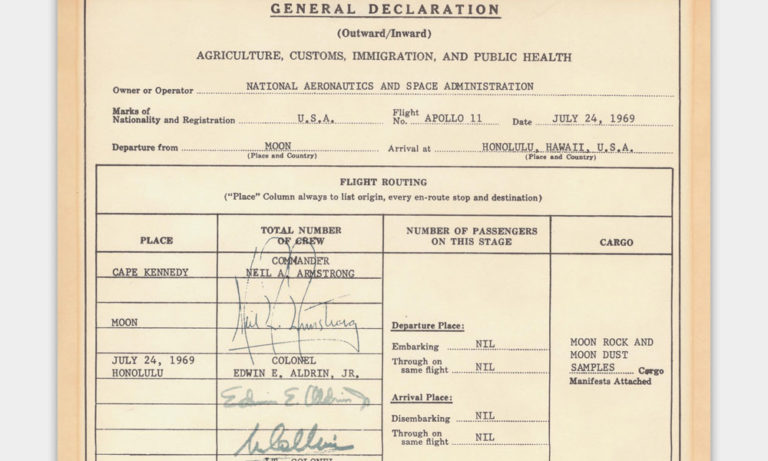 GENERAL DECLARATION
(Outward/Inward)
AGRICULTURE, CUSTOMS, IMMIGRATION, AND PUBLIC HEALTH
Owner or Operator NATIONAL AERONAUTICS AND SPACE ADMINISTRATION
Marks of
Nationality and Registration U.S.A. Flight No. APOLLO 11 Date JULY 24, 1969
Departure from MOON Arrival at HONOLULU, HAWAII, U.S.A.
(Place and Country) (Place and Country)
FLIGHT ROUTING
("Place" Column always to list origin, every en-route stop and destination)
PLACE
TOTAL NUMBER
OF CREW
NUMBER OF PASSENGERS
ON THIS STAGE
CARGO
CAPE KENNEDY
COMMANDER
NEIL A. ARMSTRONG
MOON
Neil A. Armstrong
JULY 24, 1969
HONOLULU
COLONEL
EDWIN E. ALDRIN, JR.
Edwin E. Aldrin Jr
M Collins
LT. COLONEL
Departure Place:
Embarking NIL
Through on
same flight NIL
Arrival Place:
Disembarking NIL
Through on
same flight NIL
MOON ROCK AND
MOON DUST
SAMPLES Cargo
Manifests Attached